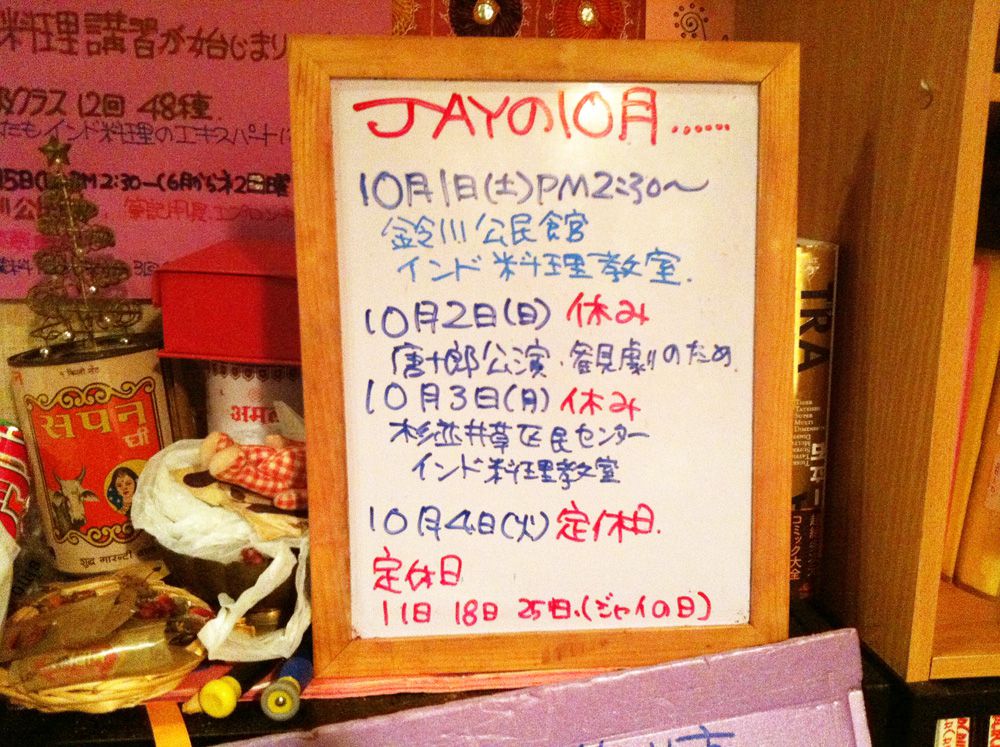 料理講習が始じまり
クラス 12回 48種
インド料理のエキスパート
PM2:30〜(6月から
JAYの10月......
10月1日(土)PM2:30〜
鈴川公民館
インド料理教室.
10月2日(日) 休み
唐十郎公演.観劇のため
10月3日(月) 休み
杉並井草区民センター
インド料理教室
10月4日(火)定休日.
定休日
11日 18日 25日.(ジャイの日)
सपन
घी
शुद्ध
TRA
コミック大全